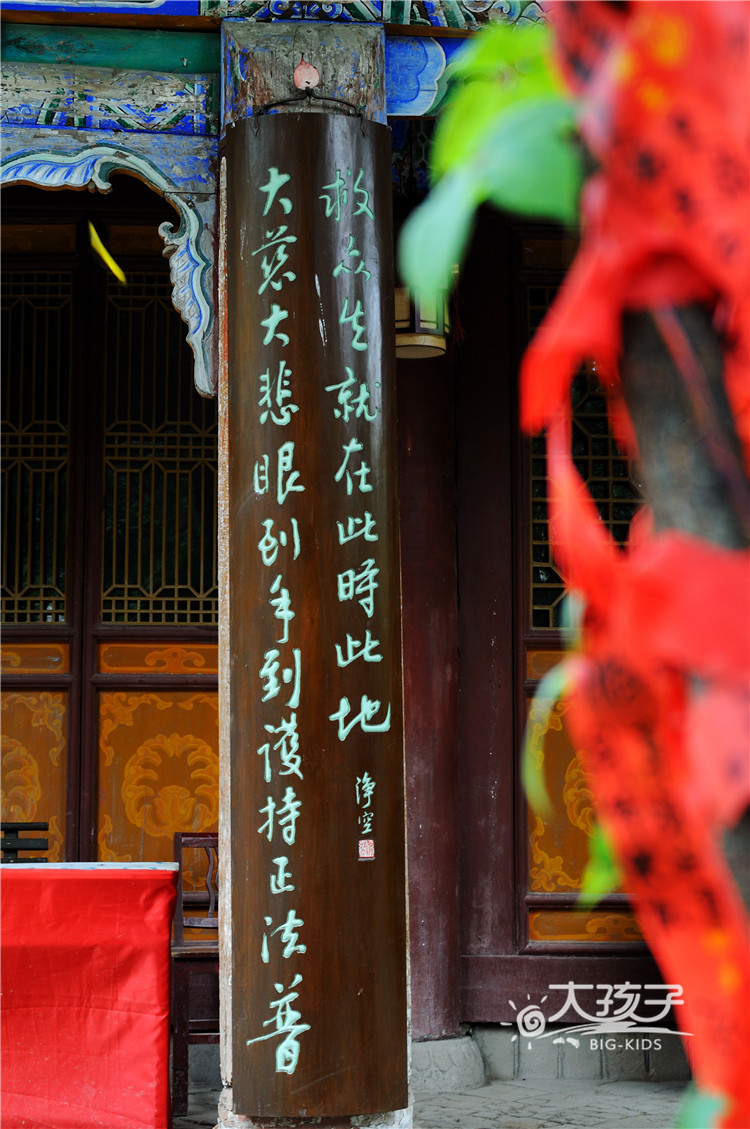 大慈大悲眼到手到護持正法普
救众生就在此時此地
淨空
大孩子
BIG-KIDS